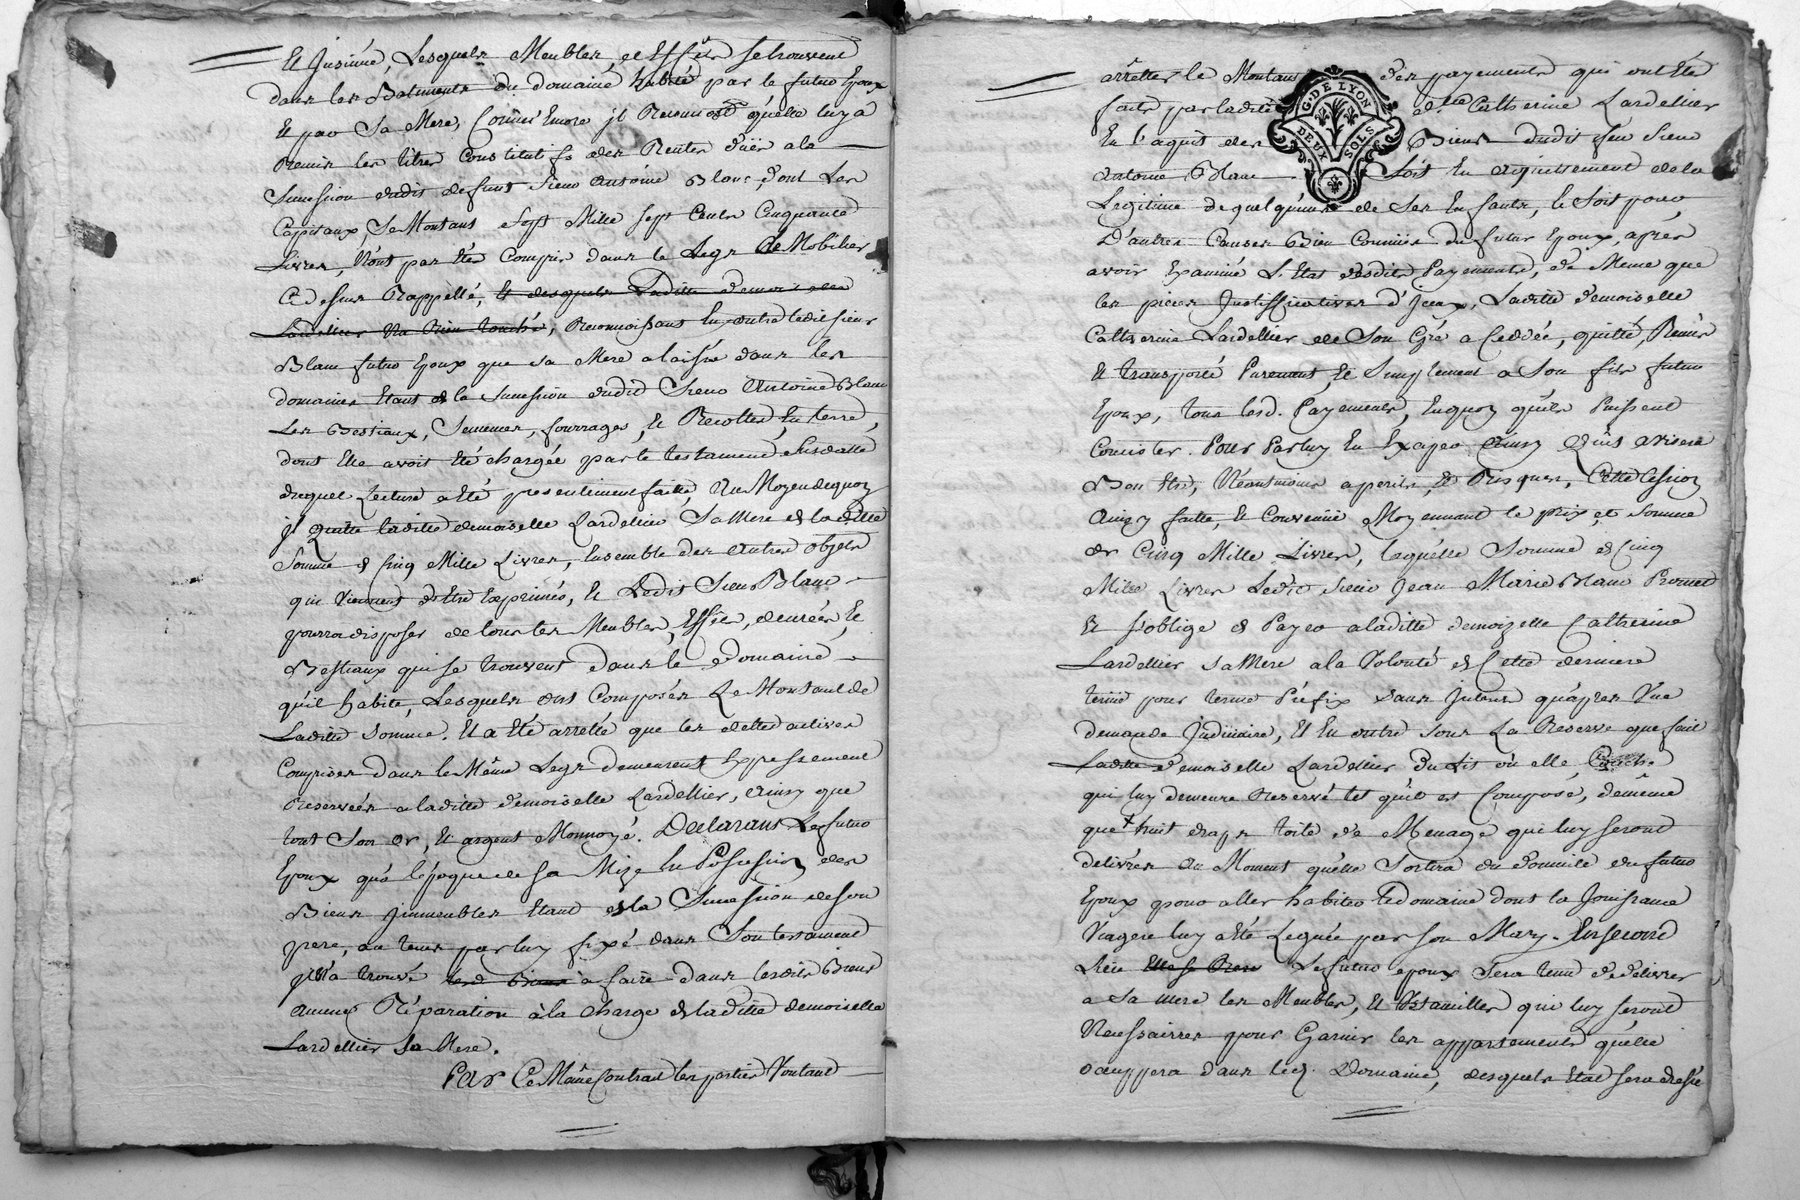 Et Insinué, Lesquels Meubles, et Effets se trouvent
dans les Batiments du domaine habité par le futur Epoux
Et par Sa Mere, Comme Encore il Reconnoit qu'elle luy a
Remis les titres Constitutifs des Rentes dües a la
Succession dudit deffunt Sieur Antoine Blanc, dont Les
Capitaux, Se Montans Sept Mille Sept Cents Cinquante
Livres, N'ont pas Eté Compris dans le Legs de Mobilier
Cy dessus Rappellé, Et desquels Laditte demoiselle
Lardelier N'a Rien touché, Reconnoissant En outre ledit Sieur
Blanc futur Epoux que sa Mere a laissé dans les
domaines Etant de la Succession dudit Sieur Antoine Blanc
Les Bestiaux, Semences, fourrages, Et Recoltes En terre,
dont Elle avoit Eté chargée par le testament Susdatté
duquel Lecture a Eté presentement faitte, Au Moyen de quoy
il quitte laditte demoiselle Lardellier Sa Mere de laditte
Somme de Cinq Mille Livres, Ensemble des Autres objets
qui Viennent d'Etre Exprimés, Et Ledit Sieur Blanc
pourra disposer de tous les Meubles, Effets, denrées, Et
Bestiaux qui se trouvent dans le domaine
qu'il habite, Lesquels ont Composés Le Montant de
Laditte Somme. Et a Eté arretté que les dettes actives
Comprises dans le Même Legs demeurent Expressement
Reservées a laditte demoiselle Lardellier, Ainsy que
tout Son or, Et argent Monnoyé. Declarant Le futur
Epoux qu'a l'époque de sa Mise En Possession des
Biens Immeubles Etant de la Succession de son
pere, au tems par luy fixé dans Son testament
il N'a trouvé lesd Biens à faire dans lesdits Biens
aucune Réparation à la charge de laditte demoiselle
Lardellier Sa Mere.
Par Ce Même Contrat les parties Voulant
arrêtter le Montant des payements qui ont Eté
faits par laditte dlle Catherine Lardellier
En l'aquit des Biens dudit feu Sieur
Antoine Blanc Soit En aquittement de la
Legitime de quelqu'uns de Ses Enfants, le Soit pour
D'autres Causes Bien Connües du futur Epoux, après
avoir Examiné L'Etat desdits Payements, de Meme que
les pieces Justifficatives d'Iceux, Laditte demoiselle
Catherine Lardellier de Son Gré a Ceddée, quitté, Remis
Et transporté Purement, Et Simplement a Son fils futur
Epoux, tous lesd. Payements, En quoy qu'ils Puissent
Consister. Pour Par luy En Exiger Ainsy qu'il avisera
Bon Etre, Néantmoins a perils, Et Risques, Cette Cession
Ainsy faitte, Et Convenüe Moyennant le prix, et Somme
de Cinq Mille Livres, laquelle Somme de Cinq
Mille Livres Ledit Sieur Jean Marie Blanc Promet
Et s'oblige de Payer a laditte demoizelle Catherine
Lardellier sa Mere a la Volonté de Cette derniere
terme pour terme Préfix sans Interet qu'apres Une
demande Judiciaire, Et En outre Sous La Reserve que fait
Laditte demoiselle Lardellier Du Lit où elle Couche
qui luy demeure Reservé tel qu'il est Composé, de même
que huit draps toile de Menage qui luy seront
delivrés Au Moment qu'elle Sortira du domicile du futur
Epoux pour aller habiter Le domaine dont la Jouissance
Viagere luy a Eté Leguée par son Mary. En Second
Lieu Le futur epoux Sera tenu de delivrer
a Sa mere les Meubles, Et Ustancilles qui luy seront
Necessaires pour Garnir les appartements qu'elle
occuppera dans led. Domaine, desquels Etat sera dressé
G. DE LYON
DEUX SOLS